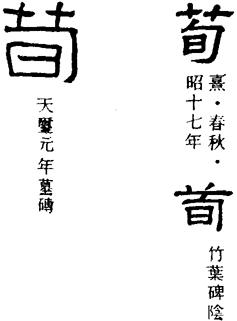 荀
熹·春秋·
昭十七年
荀
竹葉碑陰
荀
天璽元年墓磚